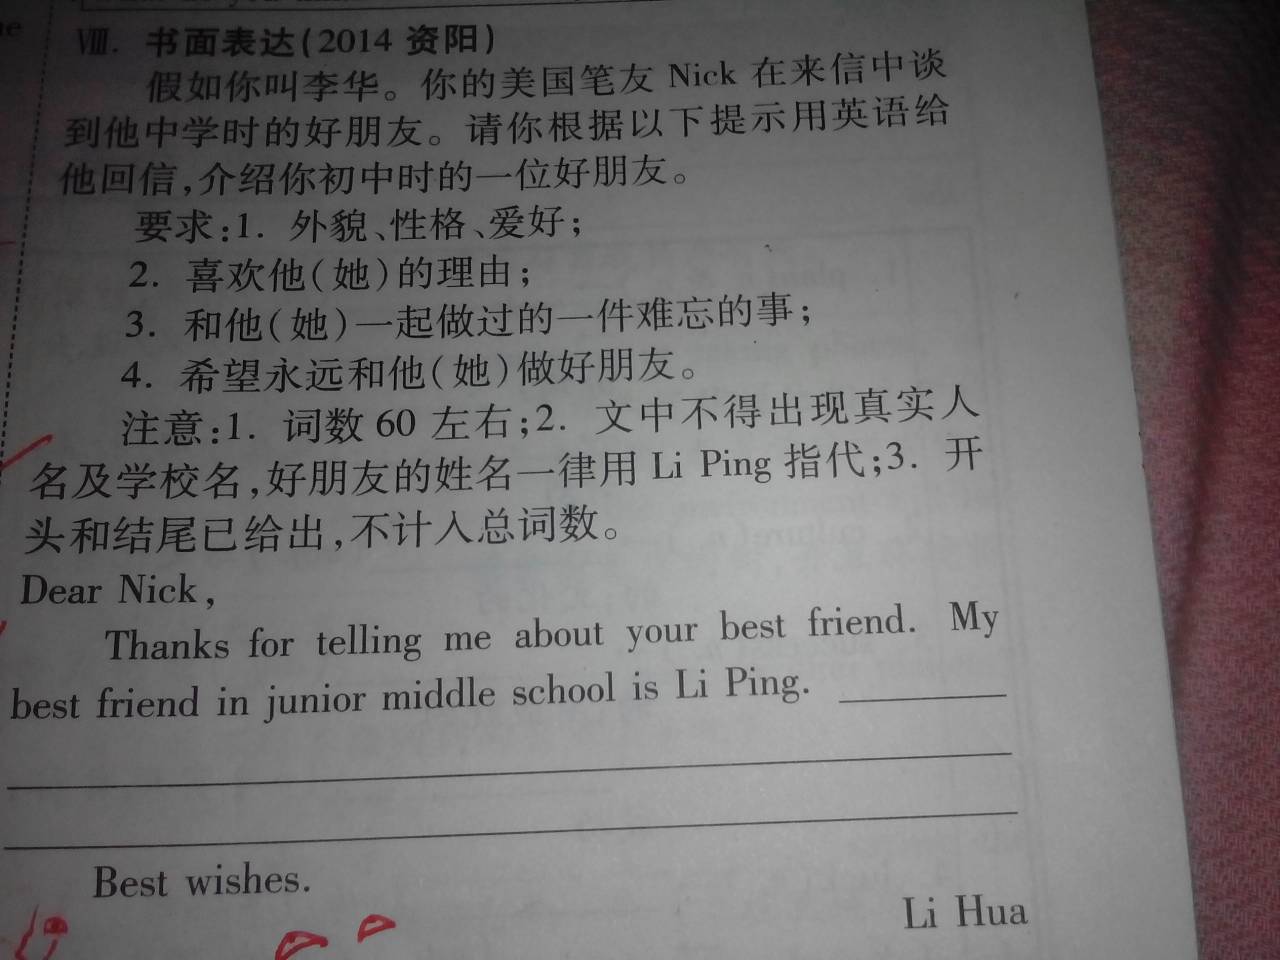 Ⅷ. 书面表达(2014 资阳)
假如你叫李华。你的美国笔友 Nick 在来信中谈
到他中学时的好朋友。请你根据以下提示用英语给
他回信,介绍你初中时的一位好朋友。
要求:1. 外貌、性格、爱好;
2. 喜欢他(她)的理由;
3. 和他(她)一起做过的一件难忘的事;
4. 希望永远和他(她)做好朋友。
注意:1. 词数 60 左右;2. 文中不得出现真实人
名及学校名,好朋友的姓名一律用 Li Ping 指代;3. 开
头和结尾已给出,不计入总词数。
Dear Nick,
Thanks for telling me about your best friend. My
best friend in junior middle school is Li Ping.
Best wishes.
Li Hua